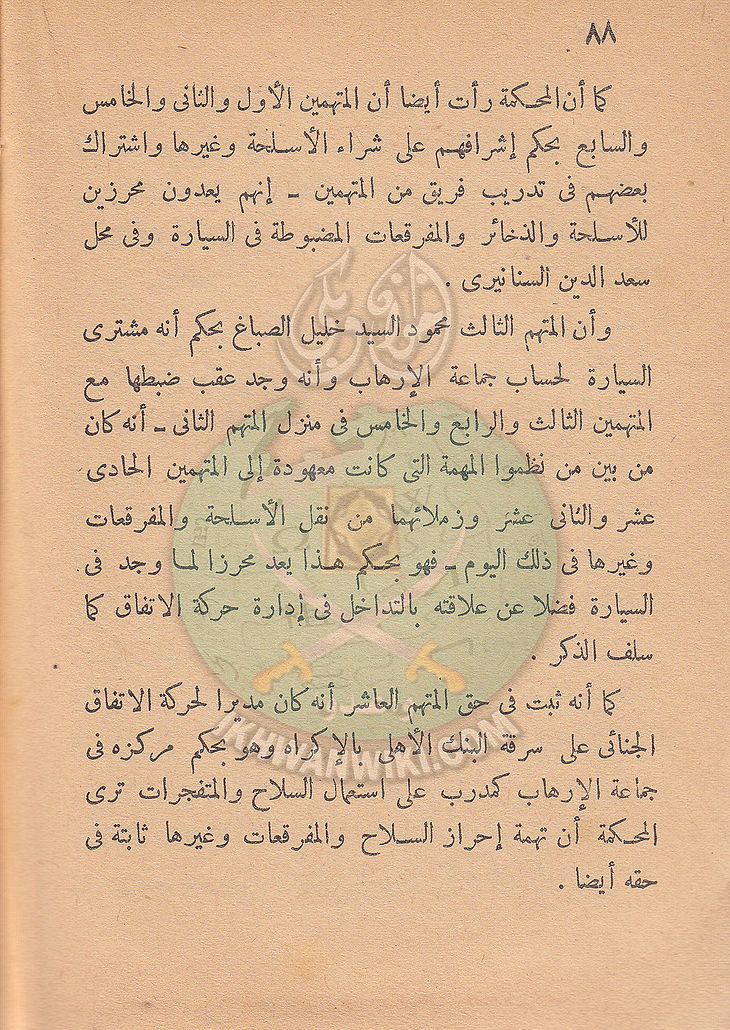 ٨٨
كما أن المحكمة رأت أيضا أن المتهمين الأول والثانى والخامس
والسابع بحكم إشرافهم على شراء الأسلحة وغيرها واشتراك
بعضهم فى تدريب فريق من المتهمين ــ إنهم يعدون محرزين
للأسلحة والذخائر والمفرقعات المضبوطة فى السيارة وفى محل
سعد الدين السنانيرى .
وأن المتهم الثالث محمود السيد خليل الصباغ بحكم أنه مشترى
السيارة لحساب جماعة الإرهاب وأنه وجد عقب ضبطها مع
المتهمين الثالث والرابع والخامس فى منزل المتهم الثانى ــ أنه كان
من بين من نظموا المهمة التى كانت معهودة إلى المتهمين الحادى
عشر والثانى عشر وزملائهما من نقل الأسلحة والمفرقعات
وغيرها فى ذلك اليوم ــ فهو بحكم هذا يعد محرزا لما وجد فى
السيارة فضلا عن علاقته بالتداخل فى إدارة حركة الاتفاق كما
سلف الذكر .
كما أنه ثبت فى حق المتهم العاشر أنه كان مديرا لحركة الاتفاق
الجنائى على سرقة البنك الأهلى بالإكراه وهو بحكم مركزه فى
جماعة الإرهاب كمدرب على استعمال السلاح والمتفجرات ترى
المحكمة أن تهمة إحراز السلاح والمفرقعات وغيرها ثابتة فى
حقه أيضا .
IKHWANWIKI.COM